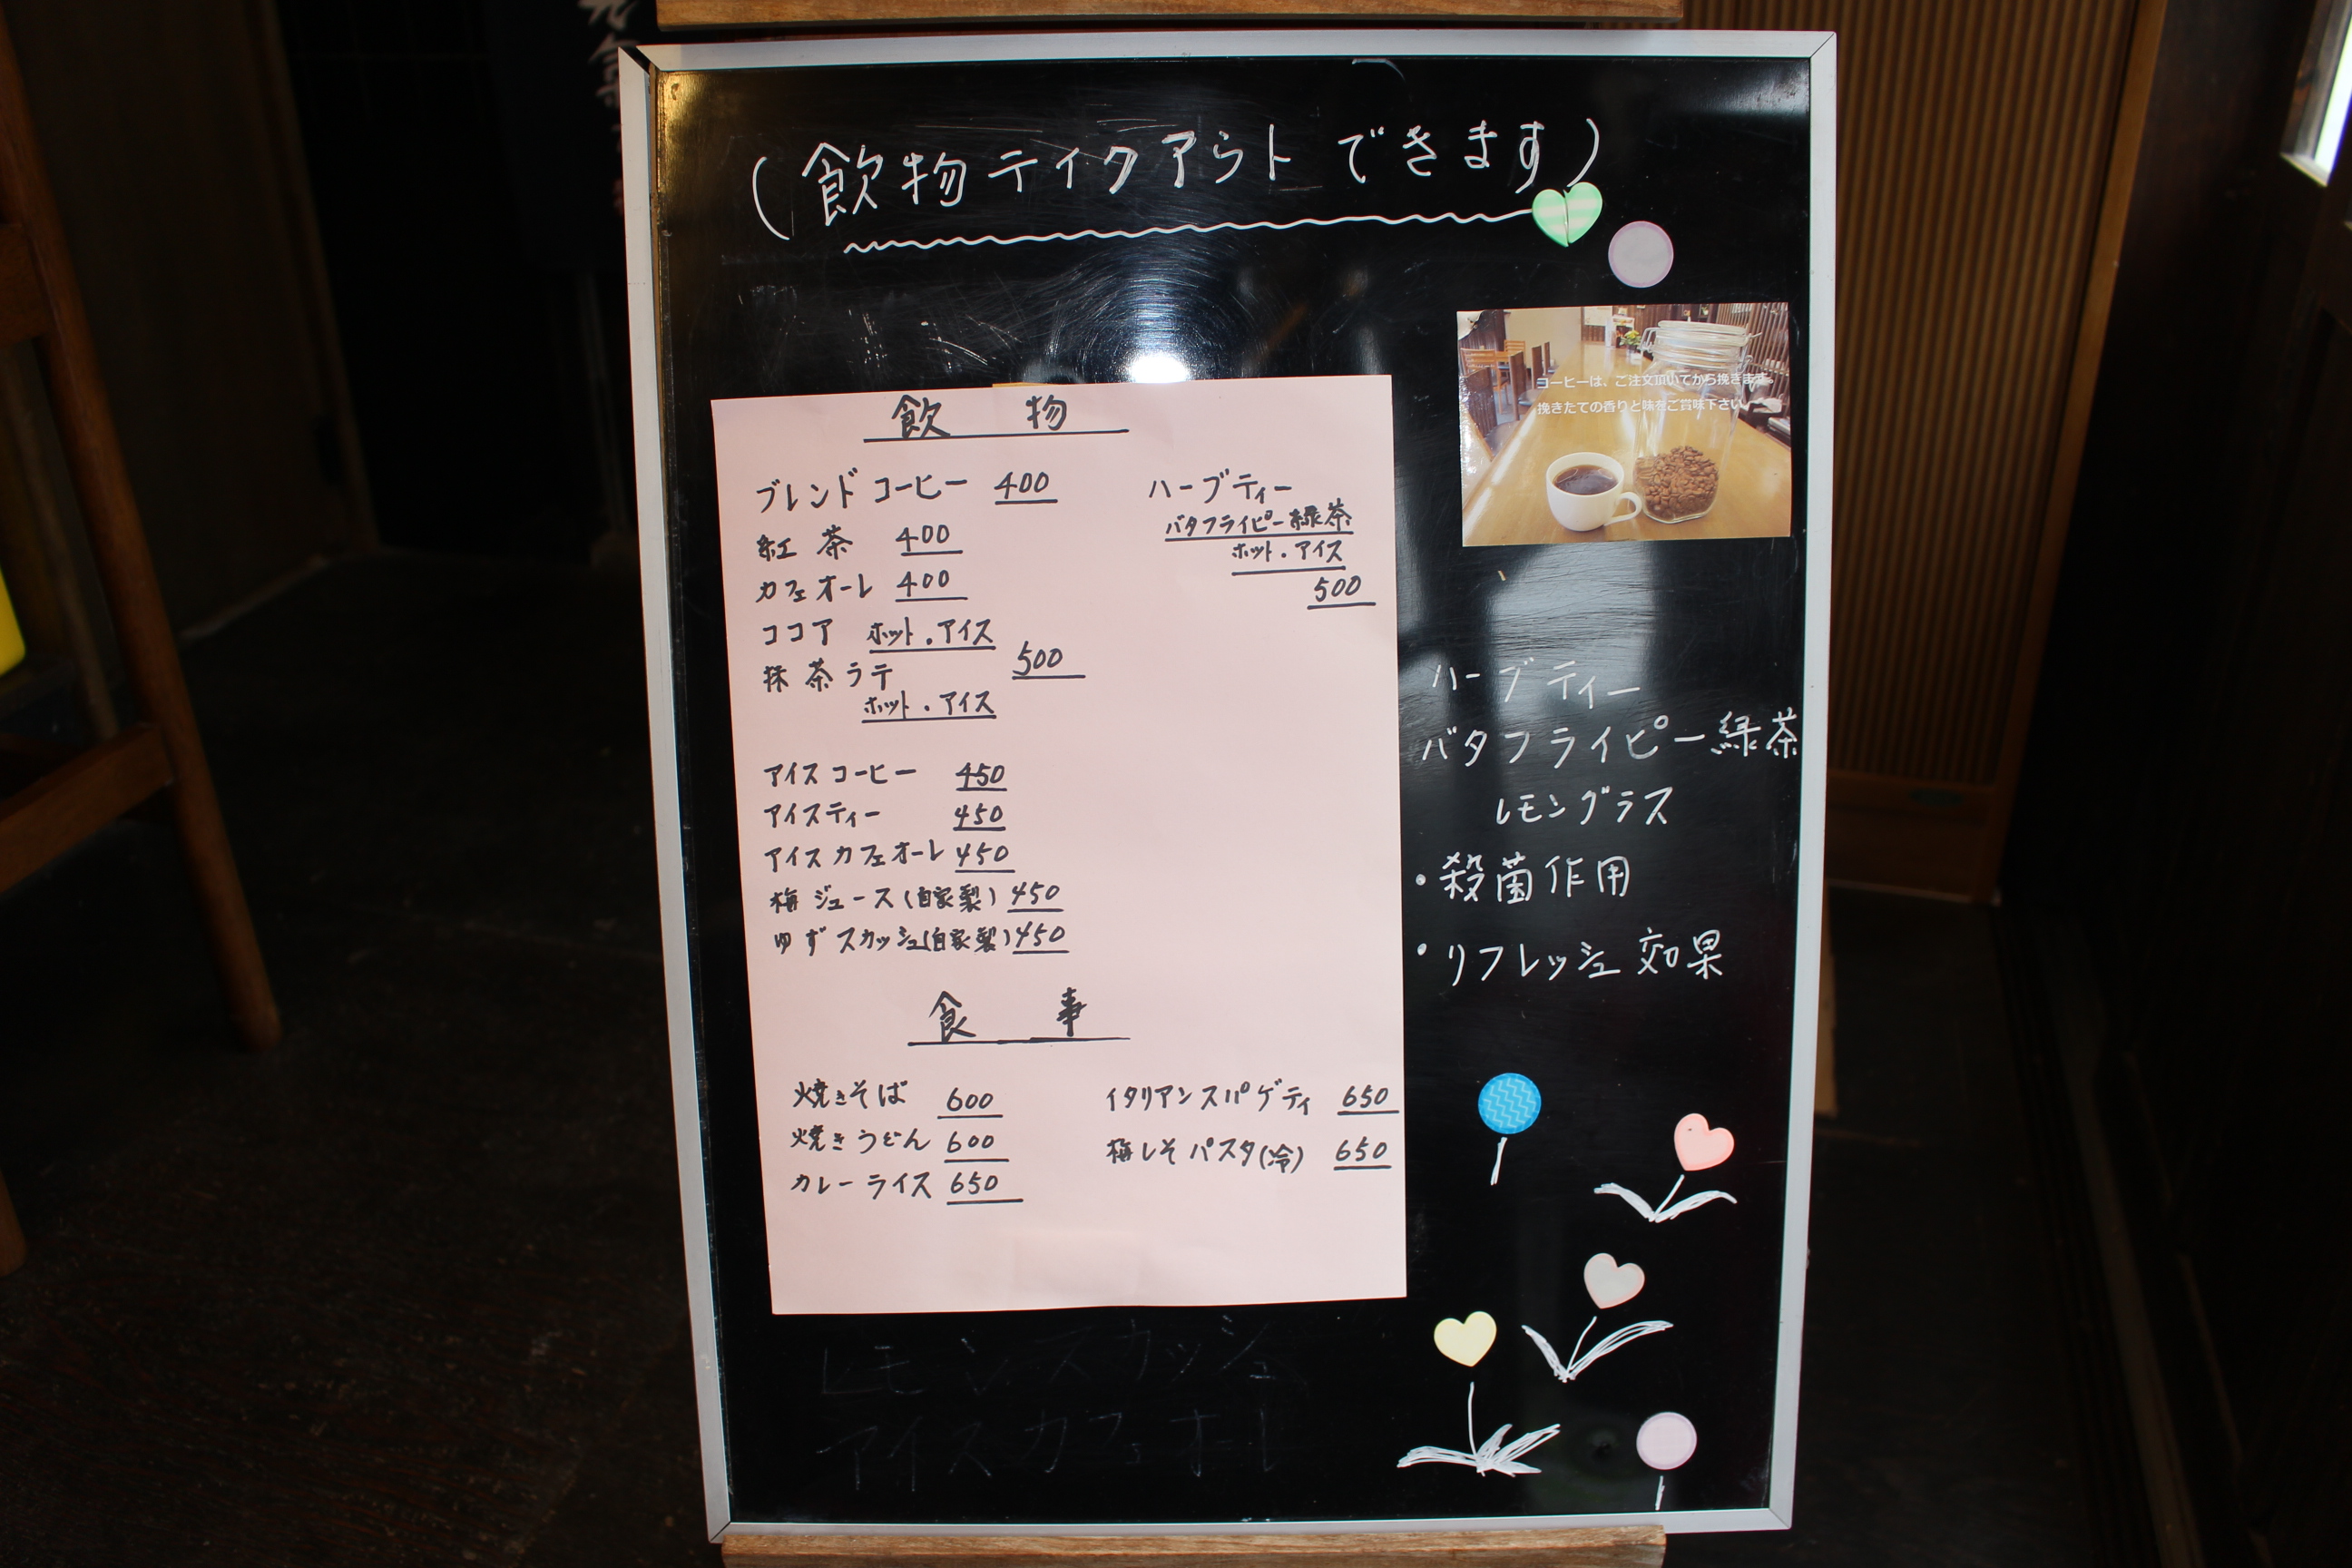 (飲物テイクアウトできます)
飲物
ブレンドコーヒー 400
紅茶 400
カフェオーレ 400
ココア ホット.アイス
500
抹茶ラテ
ホット.アイス
アイスコーヒー 450
アイスティー 450
アイスカフェオーレ 450
梅ジュース(自家製) 450
ゆずスカッシュ(自家製) 450
ハーブティー
バタフライピー緑茶
ホット.アイス
500
食事
焼きそば 600
焼きうどん 600
カレーライス 650
イタリアンスパゲティ 650
梅しそパスタ(冷) 650
コーヒーは、ご注文頂いてから挽きます。
挽きたての香りと味をご賞味下さい
ハーブティー
バタフライピー緑茶
レモングラス
・殺菌作用
・リフレッシュ効果
レモンスカッシュ
アイスカフェオーレ